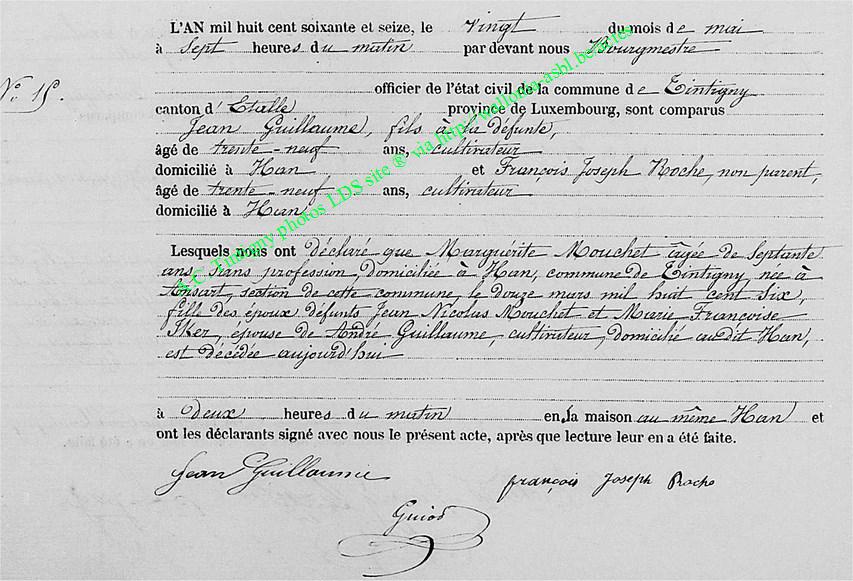 L'AN mil huit cent soixante et seize, le vingt du mois de mai
à sept heures du matin par devant nous Bourgmestre
N° 15.
officier de l'état civil de la commune de Tintigny
canton d'Etalle province de Luxembourg, sont comparus
Jean Guillaume, fils à la défunte,
âgé de trente-neuf ans, cultivateur
domicilié à Han et François Joseph Roche, non parent,
âgé de trente-neuf ans, cultivateur
domicilié à Han
Lesquels nous ont déclaré que Marguérite Mouchet âgée de septante
ans, sans profession, domiciliée à Han, commune de Tintigny née à
Ansart, section de cette commune, le douze mars mil huit cent six,
fille des époux défunts Jean Nicolas Mouchet et Marie Françoise
Iker, épouse de André Guillaume, cultivateur, domicilié audit Han,
est décédée aujourd'hui
à deux heures du matin en la maison au même Han et
ont les déclarants signé avec nous le présent acte, après que lecture leur en a été faite.
Jean Guillaume françois Joseph Roche
Guiod
Tintigny photos LDS site ® via http://wallonia-asbl.be/actes